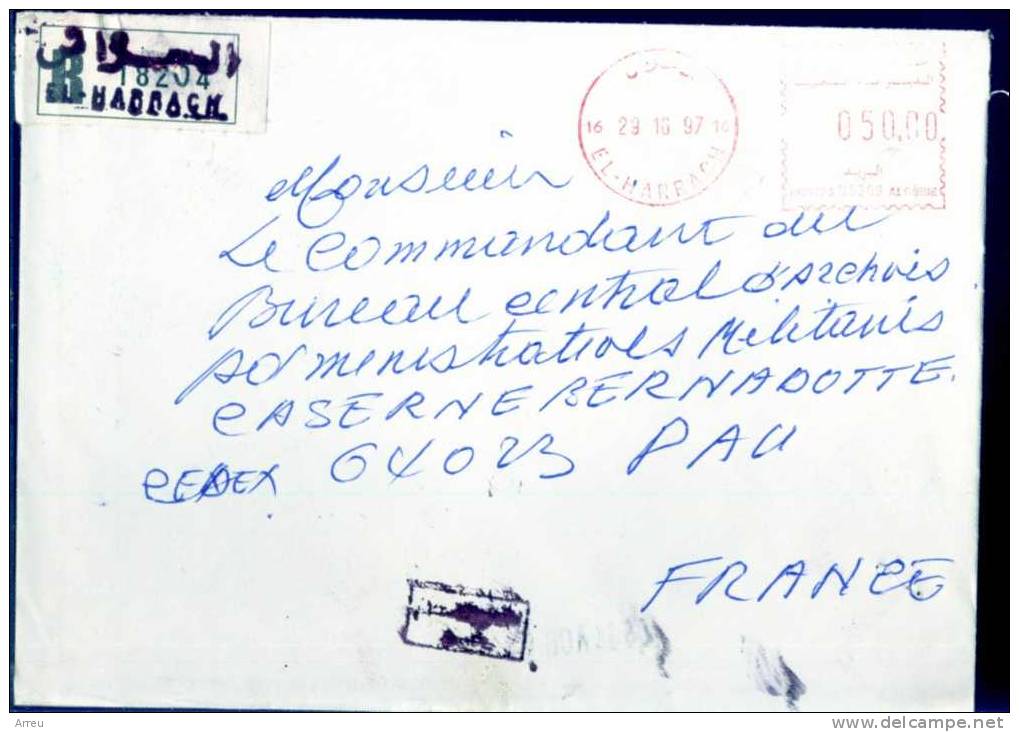 R 18204
EL-HARRACH
16 29 10 97 16
EL-HARRACH
050,00
Monsieur
Le Commandant du
Bureau central d'Archives
Administratives Militaires
CASERNE BERNADOTTE.
CEDEX 64023 PAU
FRANCE
Arreu
www.delcampe.net